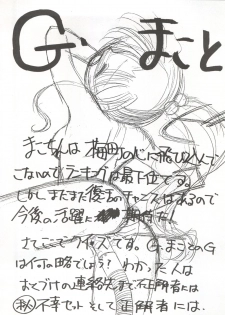 G. まこと
まこちんは 梅町のじに飛び込んで
こないのでラーキングは最下位です。
しかしまだまだ復活のチャンスはあるので
今後の活躍に期待だ!
さてここでクイズです。G.まことのG
は何の略でしょう? わかった人は
おてづけの連絡先まで正解者には
㊙ 不幸セットそして正解者には.